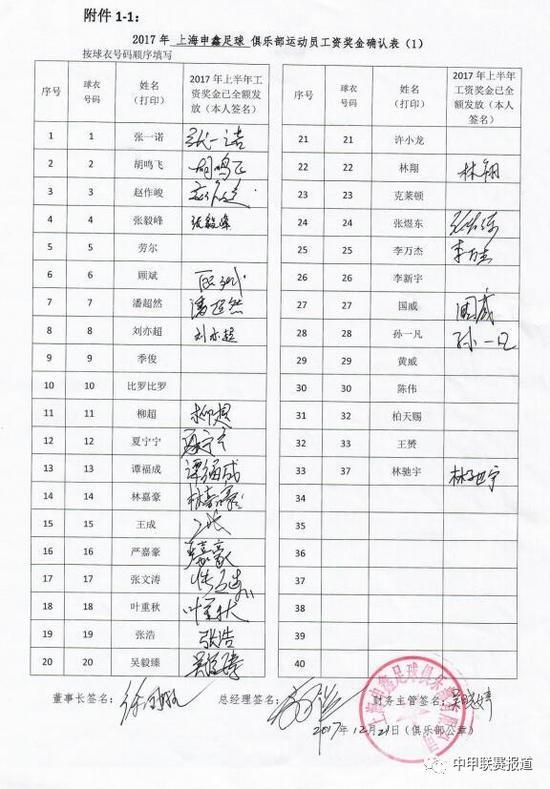 附件 1-1：
2017 年 上海申鑫足球 俱乐部运动员工资奖金确认表（1）
按球衣号码顺序填写
序号 球衣号码 姓名（打印） 2017 年上半年工资奖金已全额发放（本人签名）
1 1 张一诺 张一诺
2 2 胡鸣飞 胡鸣飞
3 3 赵作峻 赵作峻
4 4 张毅峰 张毅峰
5 5 劳尔
6 6 顾斌
7 7 潘超然 潘超然
8 8 刘亦超 刘亦超
9 9 季俊
10 10 比罗比罗
11 11 柳超 柳超
12 12 夏宁宁 夏宁宁
13 13 谭福成 谭福成
14 14 林嘉豪 林嘉豪
15 15 王成 王成
16 16 严嘉豪 严嘉豪
17 17 张文涛
18 18 叶重秋 叶重秋
19 19 张浩 张浩
20 20 吴毅臻 吴毅臻
序号 球衣号码 姓名（打印） 2017 年上半年工资奖金已全额发放（本人签名）
21 21 许小龙
22 22 林翔 林翔
23 23 克莱顿
24 24 张煜东 张煜东
25 25 李万杰 李万杰
26 26 李新宇
27 27 国威 国威
28 28 孙一凡 孙一凡
29 29 黄威
30 30 陈伟
31 32 柏天赐
32 33 王赟
33 37 林驰宇 林驰宇
34
35
36
37
38
39
40
董事长签名： 总经理签名： 财务主管签名：
2017年12月21日（俱乐部公章）
上海申鑫足球俱乐部有限公司
中甲联赛报道